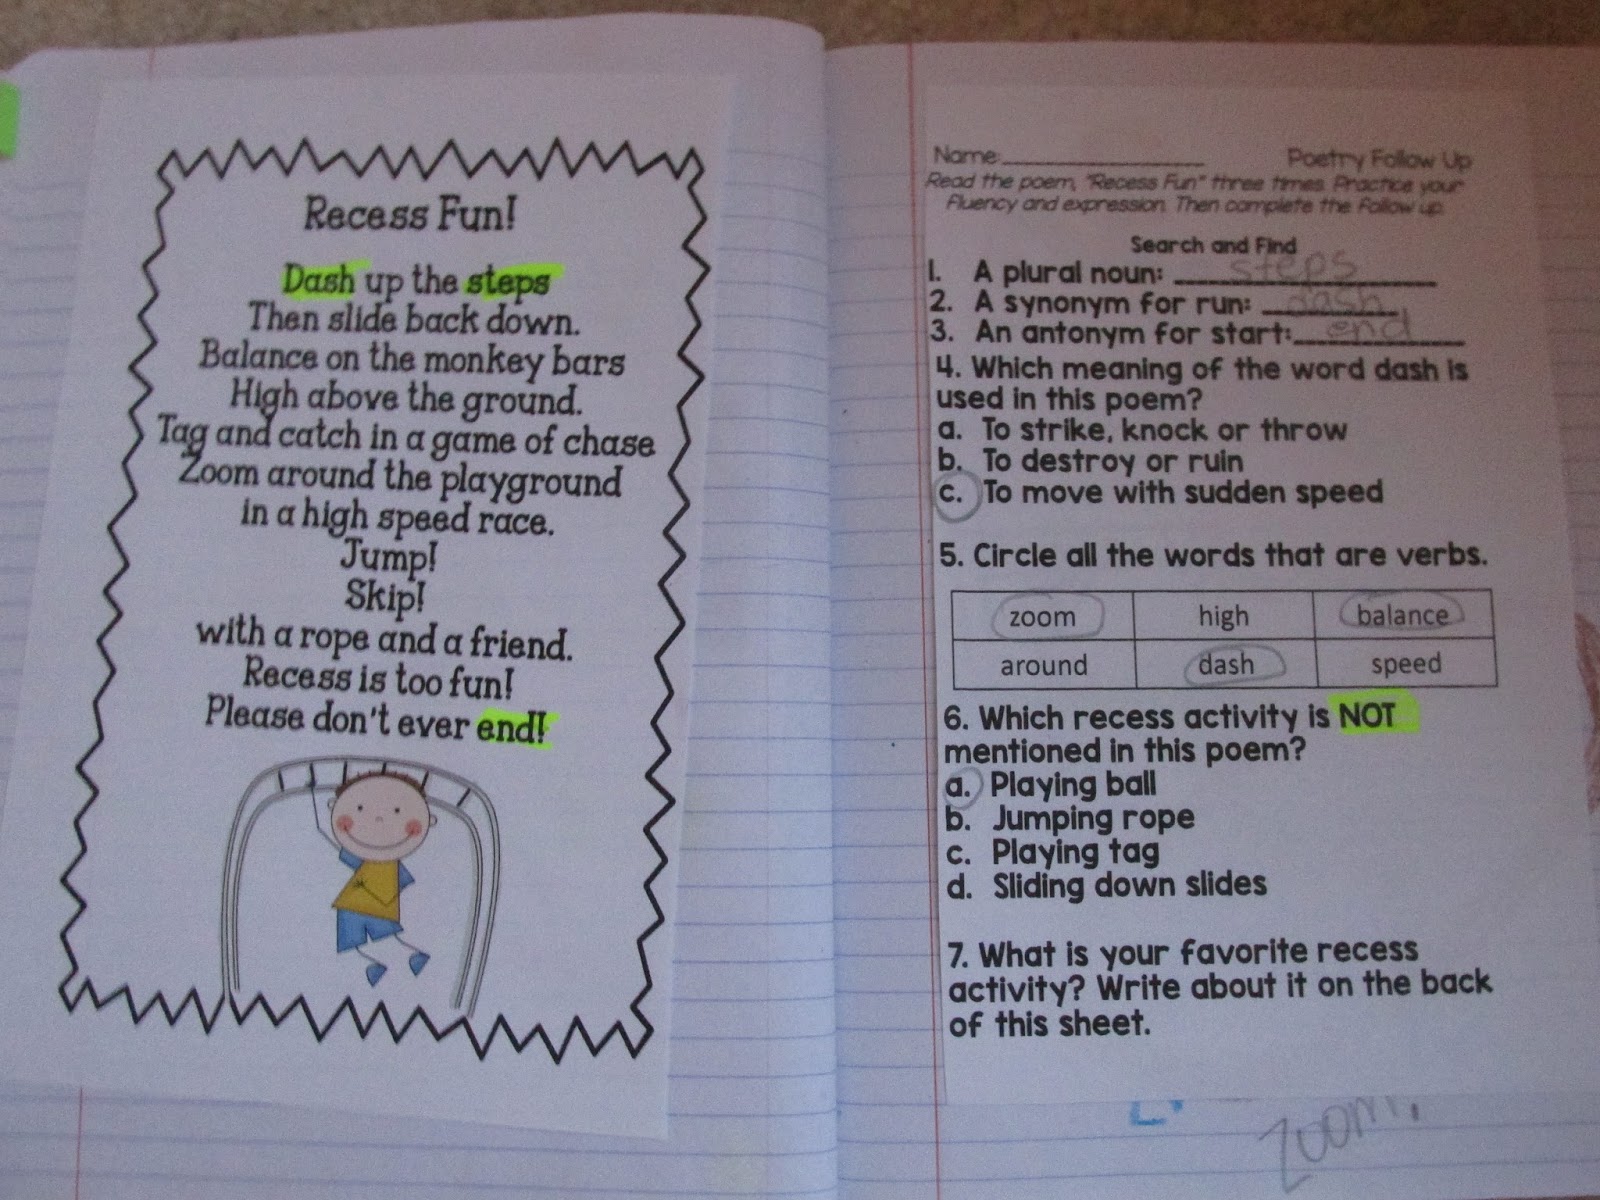 Recess Fun!
Dash up the steps
Then slide back down.
Balance on the monkey bars
High above the ground.
Tag and catch in a game of chase
Zoom around the playground
in a high speed race.
Jump!
Skip!
with a rope and a friend.
Recess is too fun!
Please don't ever end!
Name:____________ Poetry Follow Up
Read the poem, "Recess Fun" three times. Practice your
fluency and expression. Then complete the follow up.
Search and Find
1. A plural noun: steps
2. A synonym for run: dash
3. An antonym for start: end
4. Which meaning of the word dash is
used in this poem?
a. To strike, knock or throw
b. To destroy or ruin
c. To move with sudden speed
5. Circle all the words that are verbs.
zoom high balance
around dash speed
6. Which recess activity is NOT
mentioned in this poem?
a. Playing ball
b. Jumping rope
c. Playing tag
d. Sliding down slides
7. What is your favorite recess
activity? Write about it on the back
of this sheet.
Zoom,